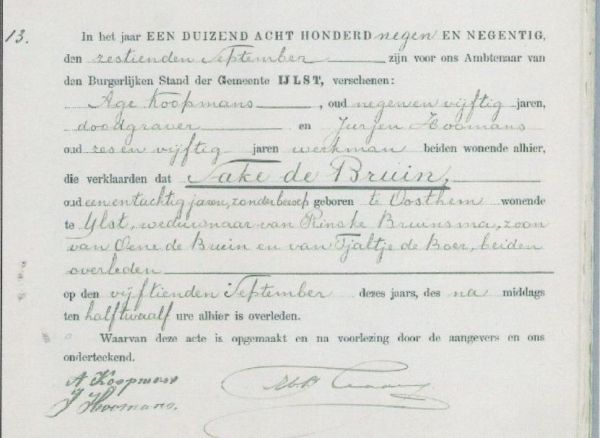 13.
In het jaar EEN DUIZEND ACHT HONDERD negen EN NEGENTIG,
den zestienden September zijn voor ons Ambtenaar van
den Burgerlijken Stand der Gemeente IJLST, verschenen:
Age Koopmans, oud negenen vijftig jaren,
doodgraver en Jurjen Hoomans
oud zesen vijftig jaren werkman beiden wonende alhier,
die verklaarden dat Sake de Bruin,
oud eenentachtig jaren, zonder beroep geboren te Oosthem wonende
te IJlst, weduwnaar van Rinske Bruinsma, zoon
van Oene de Bruin en van Tjaltje de Boer, beiden
overleden
op den vijftienden September dezes jaars, des na middags
ten half twaalf ure alhier is overleden.
Waarvan deze acte is opgemaakt en na voorlezing door de aangevers en ons
onderteekend.
A Koopmans
J Hoomans.